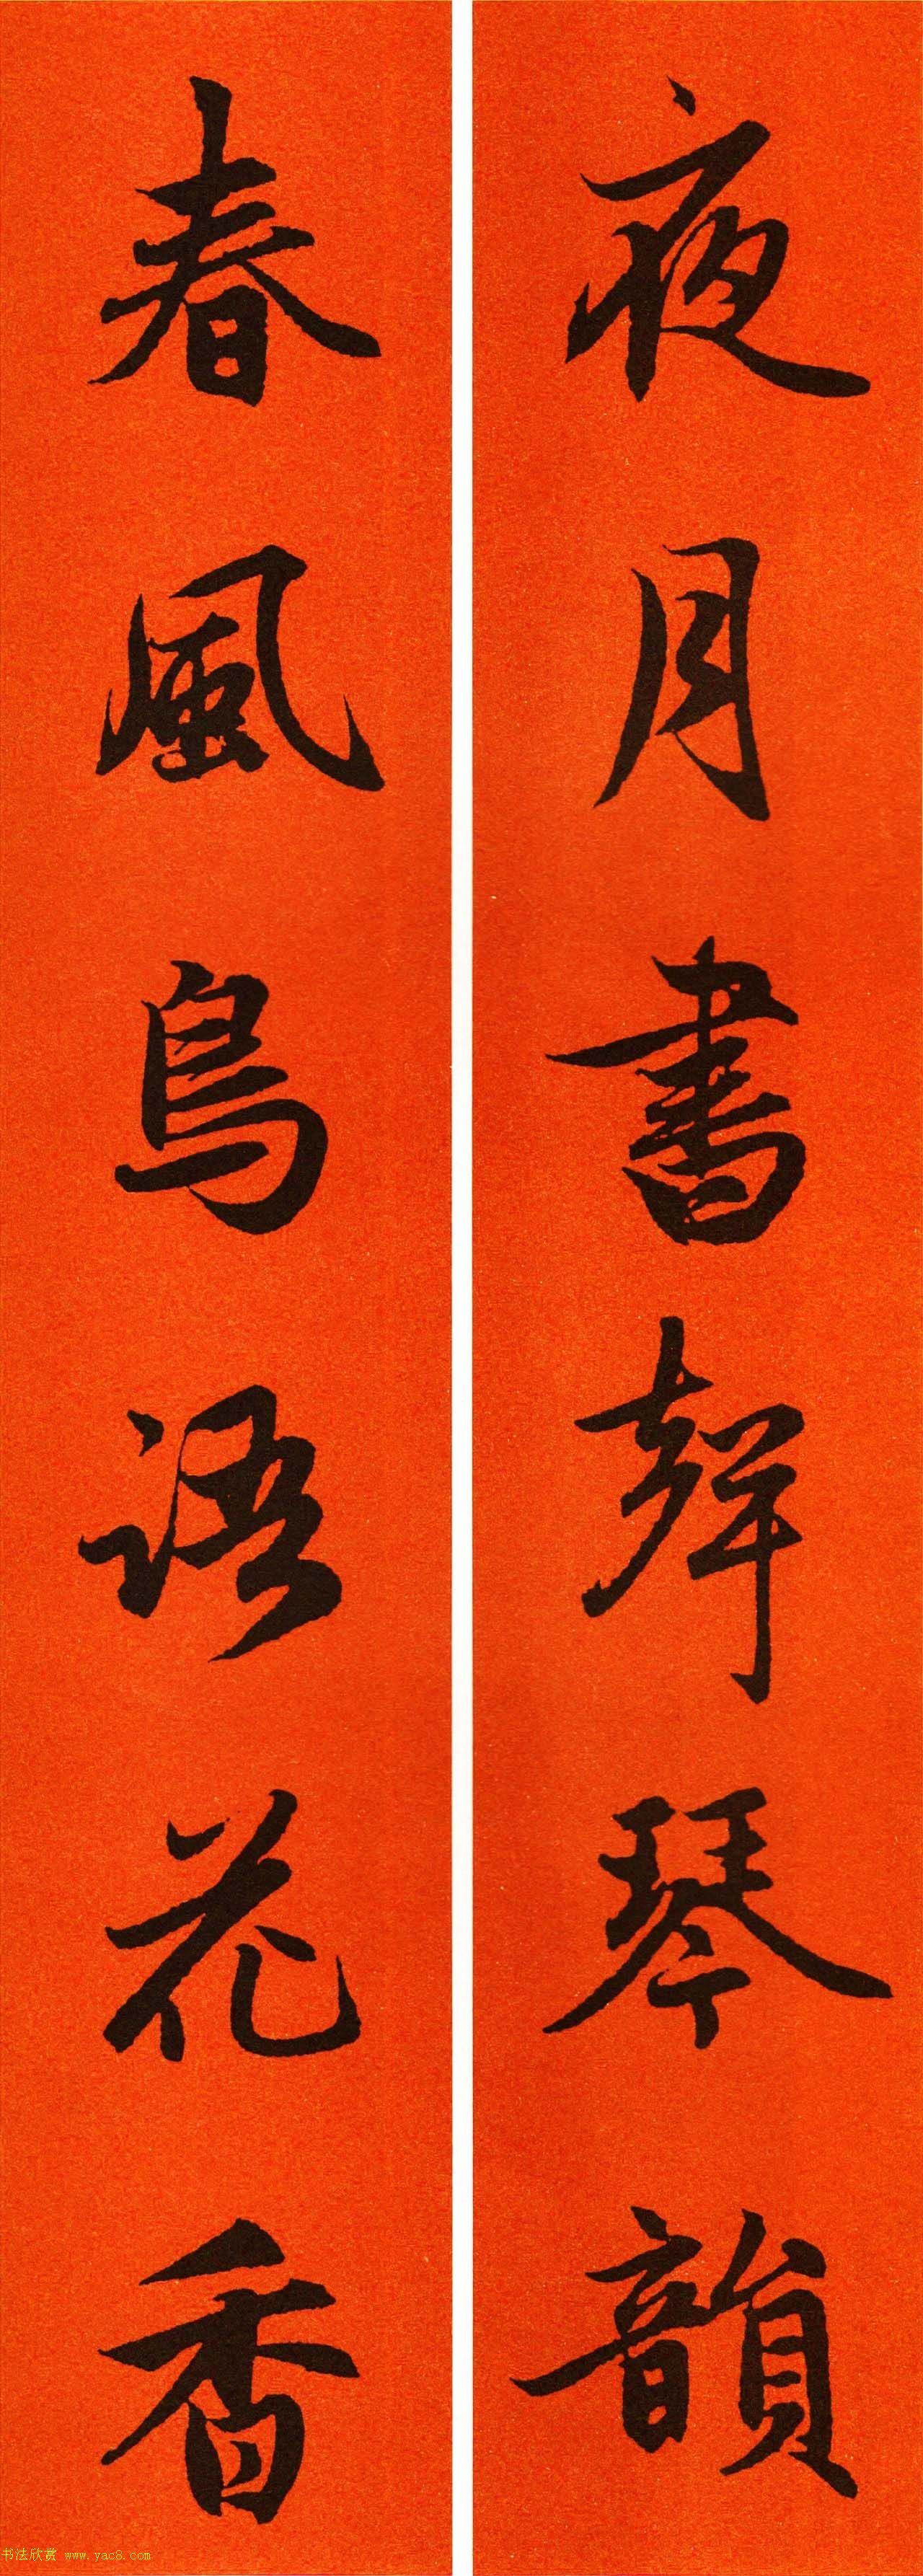 夜月書聲琴韻
春風鳥語花香
书法欣赏 www.yac8.com